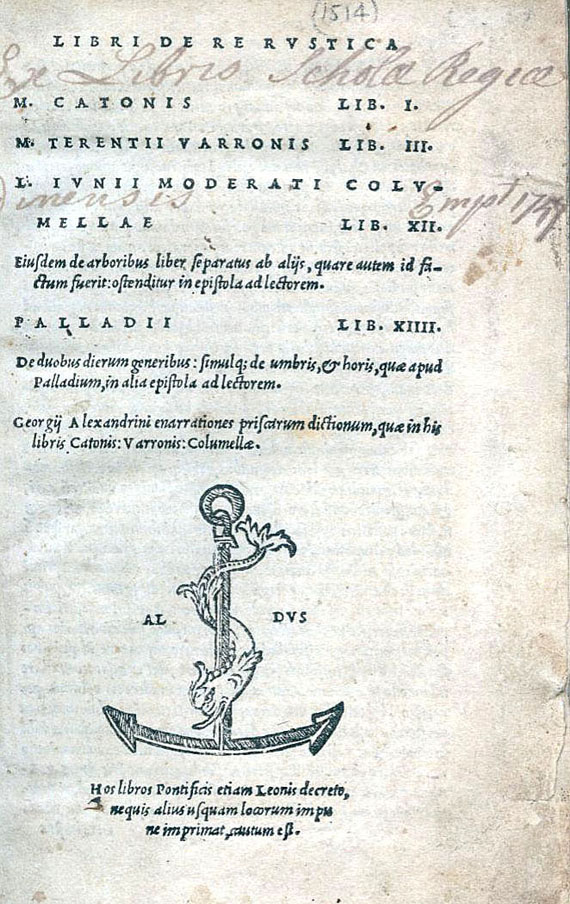 (1514)
LIBRI DE RE RVSTICA
Ex Libris Scholæ Regiæ
M. CATONIS LIB. I.
M. TERENTII VARRONIS LIB. III.
L. IVNII MODERATI COLV-
MELLAE LIB. XII.
Empt 1757
Eiusdem de arboribus liber separatus ab alijs, quare autem id fa-
ctum fuerit: ostenditur in epistola ad lectorem.
PALLADII LIB. XIIII.
De duobus dierum generibus: simulq; de umbris, & horis, quæ apud
Palladium, in alia epistola ad lectorem.
Georgij Alexandrini enarrationes priscarum dictionum, quæ in his
libris Catonis: Varronis: Columellæ.
AL DVS
Hos libros Pontificis etiam Leonis decreto,
nequis alius usquam locorum impu
ne imprimat, cautum est.